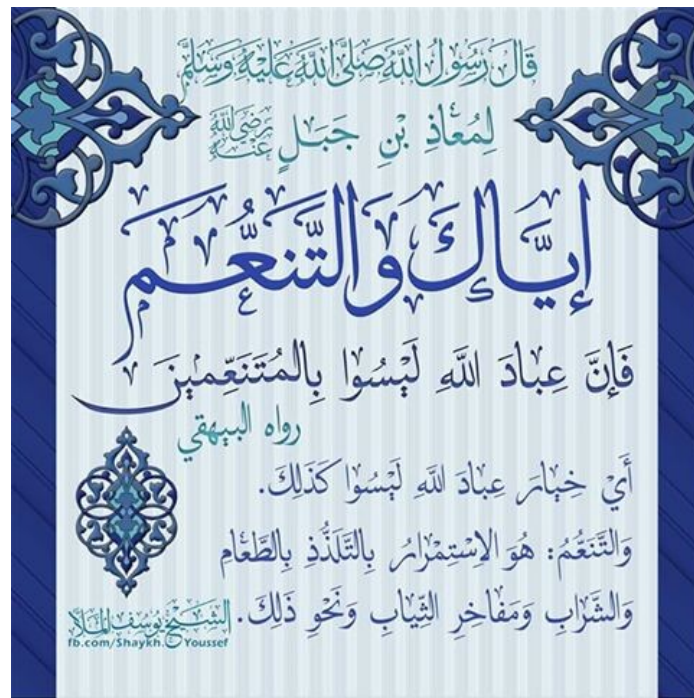 قَالَ رَسُولُ اللَّهِ صَلَّى اللَّهُ عَلَيْهِ وَسَلَّمَ
لِمُعَاذِ بْنِ جَبَلٍ رَضِيَ اللَّهُ عَنْهُ
إِيَّاكَ وَالتَّنَعُّمَ
فَإِنَّ عِبَادَ اللَّهِ لَيْسُوا بِالْمُتَنَعِّمِينَ
رواه البيهقي
أَيْ خِيَارَ عِبَادِ اللَّهِ لَيْسُوا كَذَلِكَ.
وَالتَّنَعُّمُ: هُوَ الِاسْتِمْرَارُ بِالتَّلَذُّذِ بِالطَّعَامِ
وَالشَّرَابِ وَمَفَاخِرِ الثِّيَابِ وَنَحْوِ ذَلِكَ.
الشيخ يوسف الملا
fb.com/Shaykh.Youssef